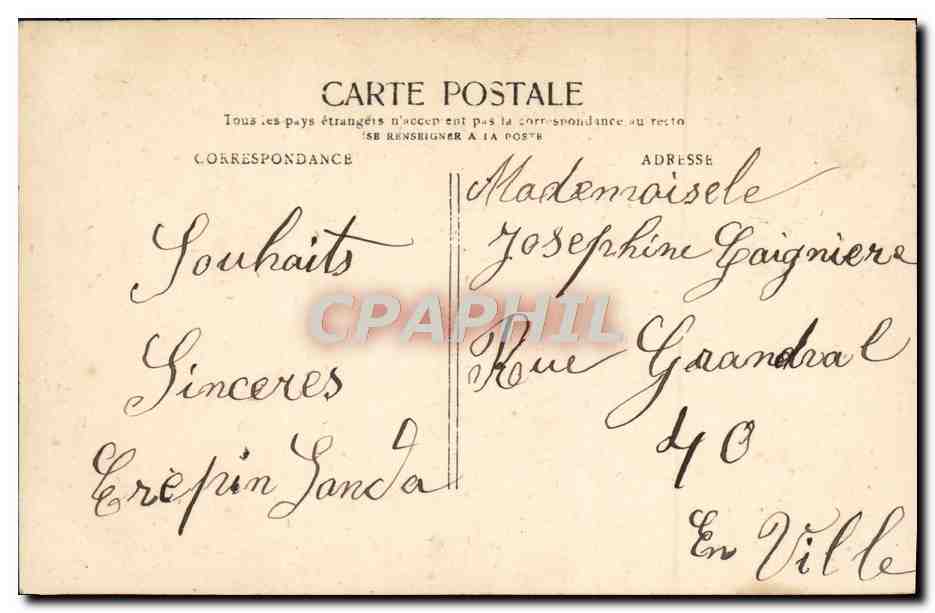 CARTE POSTALE
Tous les pays étrangers n'acceptent pas la correspondance au recto
SE RENSEIGNER A LA POSTE
CORRESPONDANCE
ADRESSE
Souhaits
Sinceres
Crépin Sanda
Mademoisele
Josephine Gaigniere
Rue Grandval
40
En Ville
CPAPHIL